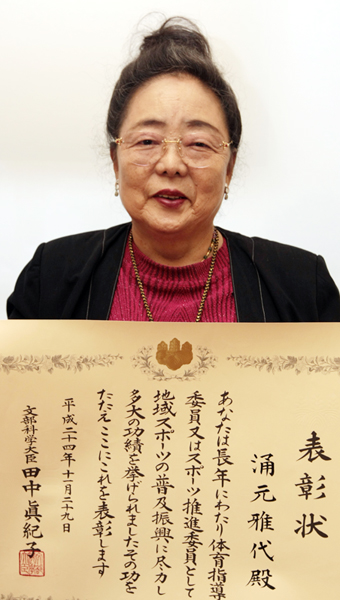 表彰状
涌元雅代殿
あなたは長年にわたり体育指導
委員又はスポーツ推進委員として
地域スポーツの普及振興に尽力し
多大の功績を挙げられましたその功を
たたえここにこれを表彰します
平成二十四年十一月二十九日
文部科学大臣 田中眞紀子